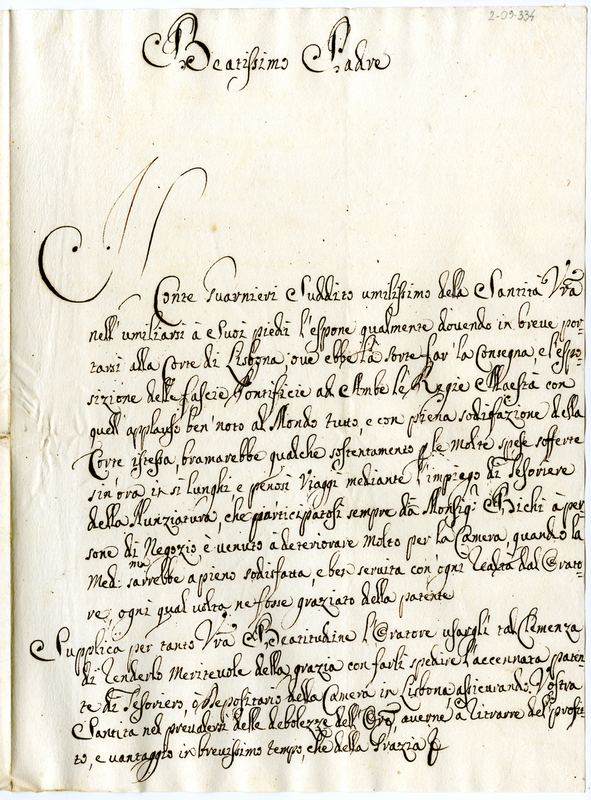 2-09-334
Beatissimo Padre
Il
Conte Guarnieri Suddito umilissimo della Santità Vrã
nell'umiliarsi à Suoi piedi l'espone qualmente dovendo in breve por-
tarsi alla Corte di Lisbona, ove ebbe la sorte far la Consegna, e l'espo-
sizione delle fascie Pontificie ad Ambe le Regie Maestà con
quell'applauso ben noto al Mondo tutto, e con piena sodisfazione della
Corte istessa, bramarebbe qualche sostentamento p le molte spese sofferte
sin'ora in sì lunghi, e penosi Viaggi mediante l'impiego di Tesoriere
della Nunziatura, che participatosi sempre da Monsigr Bichi à per
sone di Negozio è venuto à deteriorare molto per la Camera, quando la
Med:ma sarebbe a pieno sodisfatta, e ben servita con ogni lealtà dal Orato-
re, ogni qual volta ne fosse graziato della patente
Supplica per tanto Vrã Beatitudine l'Oratore usargli tal Clemenza
di renderlo Meritevole della grazia con farli spedire l'accennata paten
te di Tesoriero, o Depositario della Camera in Lisbona, assicurando Vostra
Santità nel prevalersi delle debolezze dell'Ore, averne à ritrarre del profit-
to, e vantaggio in brevissimo tempo, che della Grazia